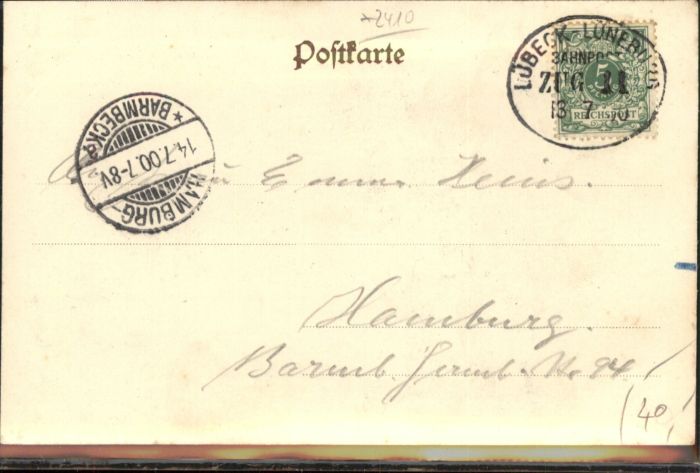 2410
Postkarte
LÜBECK-LÜNEBURG
BAHNPOST
ZUG 11
13 7
5
REICHSPOST
HAMBURG-
14.7.00.7-8V
* BARMBECK a.
Emma Heins.
Hamburg.
Barmb. No 94
(40,